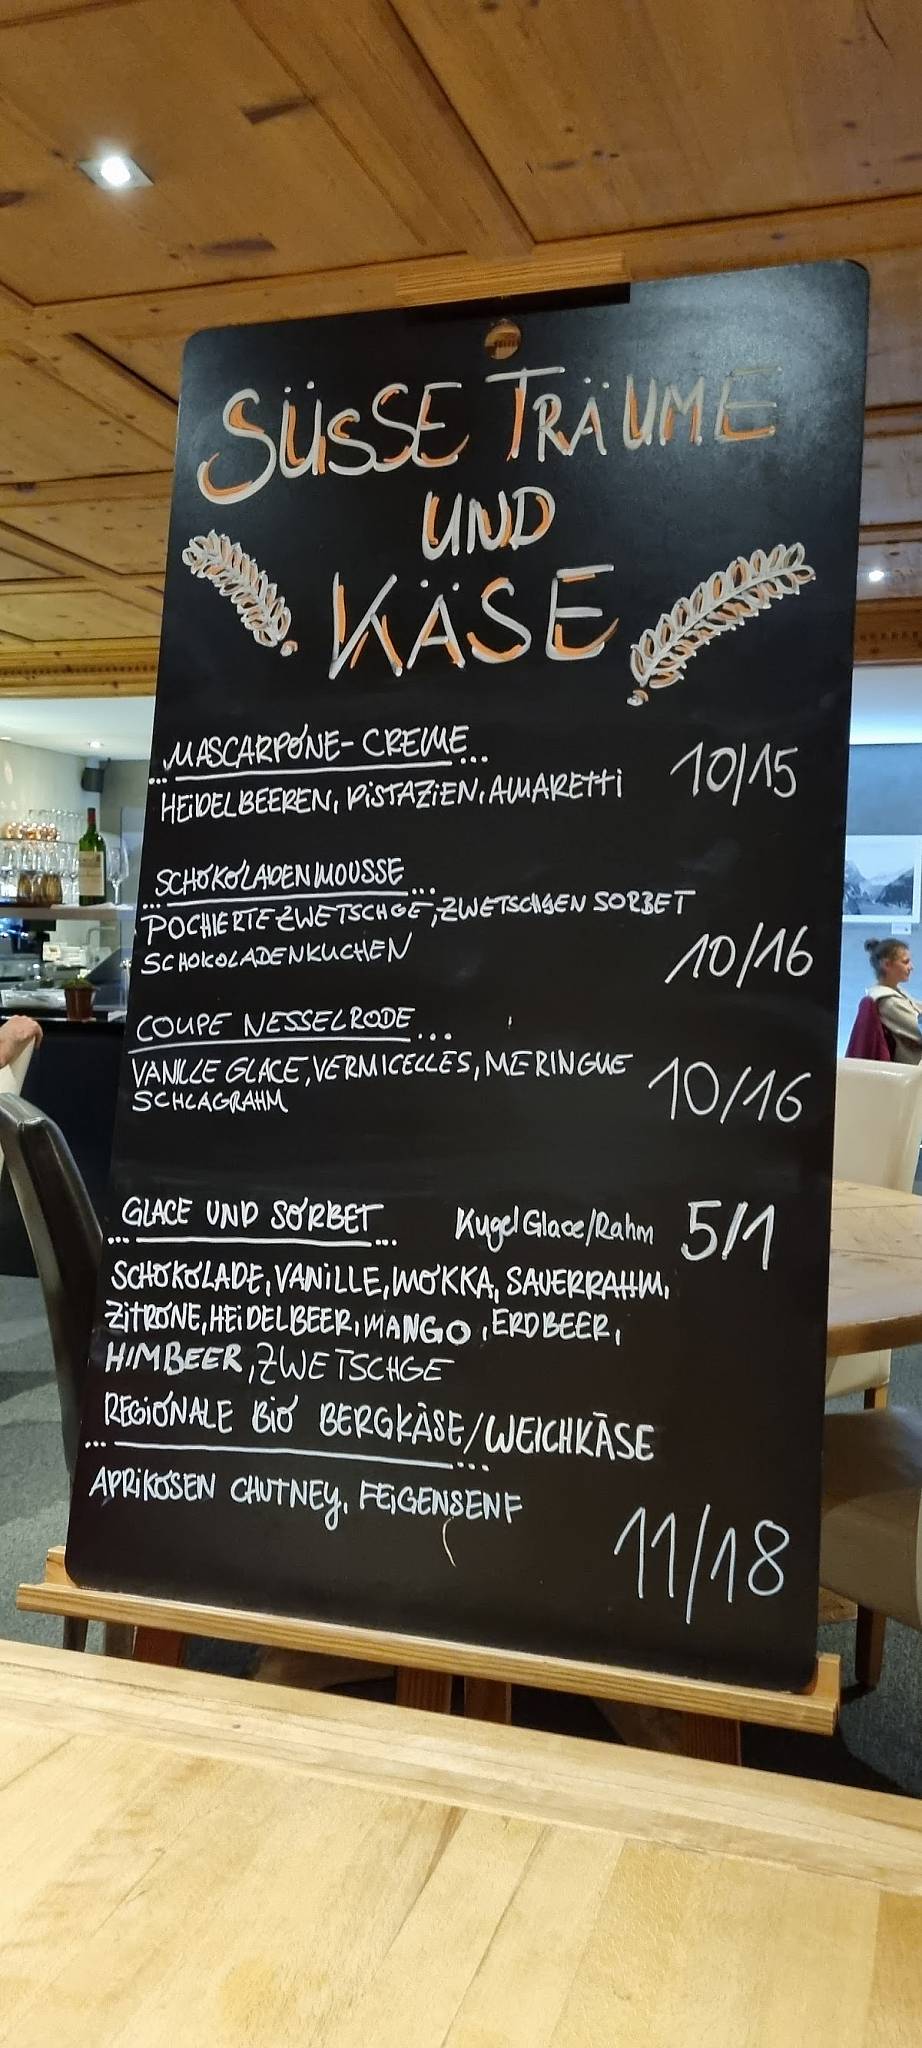 SÜSSE TRÄUME
UND
KÄSE
MASCARPONE-CREME
...
...
HEIDELBEEREN, PISTAZIEN, AMARETTI
10/15
SCHOKOLADENMOUSSE
...
...
POCHIERTE ZWETSCHGE, ZWETSCHGEN SORBET
SCHOKOLADENKUCHEN
10/16
COUPE NESSELRODE ...
VANILLE GLACE, VERMICELLES, MERINGUE
SCHLAGRAHM
10/16
GLACE UND SORBET Kugel Glace/Rahm 5/1
...
...
SCHOKOLADE, VANILLE, MOKKA, SAUERRAHM,
ZITRONE, HEIDELBEER, MANGO, ERDBEER,
HIMBEER, ZWETSCHGE
REGIONALE BIO BERGKÄSE/WEICHKÄSE
...
...
APRIKOSEN CHUTNEY, FEIGENSENF
11/18